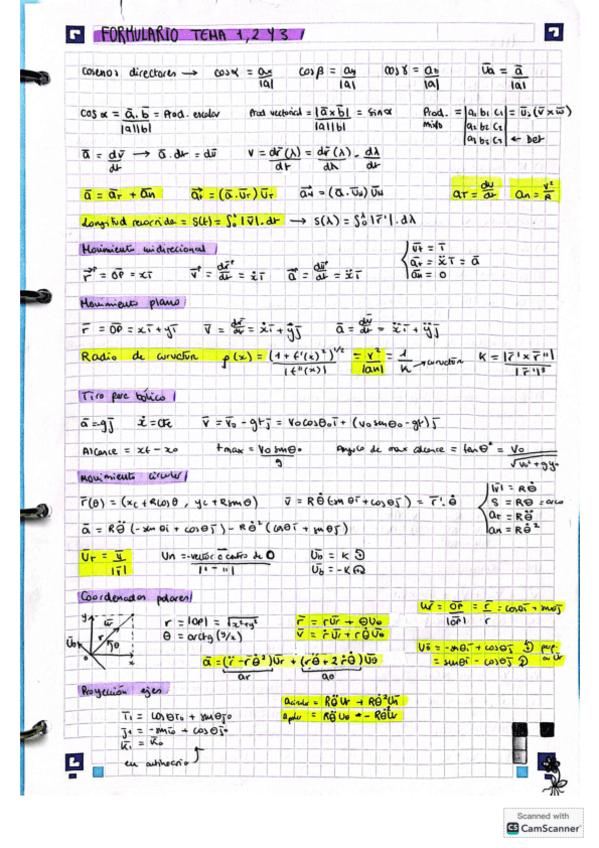 FORMULARIO TEMA 1, 2 Y 3
Cosenos directores → cos α = ax/|a| cos β = ay/|a| cos γ = az/|a| ūa = ā/|a|
cos α = ā·b̄/|a||b| = Prod. escalar Prod vectorial = |ā×b̄|/|a||b| = sin α Prod. mixto = |a1 b1 c1| = ū·(v̄×w̄)
|a2 b2 c2|
|a3 b3 c3| ← Det
ā = dv̄/dt → ā·dt = dv̄ v = dr̄(λ)/dt = dr̄(λ)/dλ · dλ/dt
ā = āT + ān āT = (ā·ūT) ūT āN = (ā·ūN) ūN aT = dv/dt an = v²/R
Longitud recorrida = S(t) = ∫₀ᵗ |v̄|·dt → S(λ) = ∫₀ᵗ |r̄'|·dλ
Movimiento unidireccional
r̄ = OP = xī v̄ = dr̄/dt = ẋī ā = dv̄/dt = ẍī
ūT = ī
āT = ẍī = ā
ān = 0
Movimiento plano
r̄ = OP = xī + yj̄ v̄ = dr̄/dt = ẋī + ẏj̄ ā = dv̄/dt = ẍī + ÿj̄
Radio de curvatura ρ(x) = (1 + f'(x)²)^1/2 / |f''(x)| = v²/|an| = 1/K → curvatura K = |r̄' × r̄''| / |r̄'|³
Tiro parabólico
ā = -gj̄ ẋ = cte v̄ = v̄0 - gtj̄ = v0 cos θ0 ī + (v0 sen θ0 - gt) j̄
Alcance = xt - x0 tmax = v0 sen θ0 / g Angulo de max alcance = tan θ* = v0 / √(v0² + gy0)
Movimiento circular
r̄(θ) = (xc + R cos θ, yc + R sen θ) v̄ = Rθ̇ (-sen θī + cos θj̄) = r̄'·θ̇
|v̄| = Rθ̇
S = Rθ = arco
aT = Rθ̈
an = Rθ̇²
ā = Rθ̈ (-sen θī + cos θj̄) - Rθ̇² (cos θī + sen θj̄)
ūT = v̄/|v̄| Un = vector a centro de O / |"-"| Ūb = K ↺
Ūb = -K ↻
Coordenadas polares
r = |OP| = √x²+y²
θ = arctg (y/x)
r̄ = rūr + θūθ
v̄ = ṙūr + rθ̇ūθ
ūr = OP/|OP| = r̄/r = cos θī + sen θj̄
ūθ = -sen θī + cos θj̄ ↺ perp a ūr
= sen θī - cos θj̄ ↻
ā = (r̈ - rθ̇²)ūr + (rθ̈ + 2ṙθ̇)ūθ
ar aθ
Proyección ejes
ī1 = cos θī0 + sen θj̄0
j̄1 = -sen ī0 + cos θj̄0
k̄1 = k̄0
en antihorario
Rθ̈ūT + Rθ̇²ūN
Rθ̈ūθ - Rθ̇²ūr
Scanned with
CS CamScanner